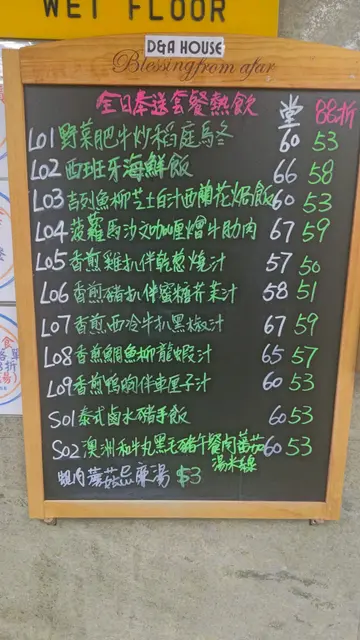 WET FLOOR
D&A HOUSE
Blessing from afar
全日奉送套餐熱飲 堂 88折
L01野菜肥牛炒稻庭烏冬 60 53
L02西班牙海鮮飯 66 58
L03吉列魚柳芝士白汁西蘭花焗飯60 53
L04菠蘿馬沙文咖喱燴牛肋肉 67 59
L05香煎雞扒伴乾葱燒汁 57 50
L06香煎豬扒伴蜜糖芥末汁 58 51
L07香煎西冷牛扒黑椒汁 67 59
L08香煎鯛魚柳龍蝦汁 65 57
L09香煎鴨胸伴車厘子汁 60 53
S01泰式鹵水豬手飯 60 53
S02澳洲和牛丸黑毛豬午餐肉蕃茄60 53
湯米線
蘑菇忌廉湯 $3